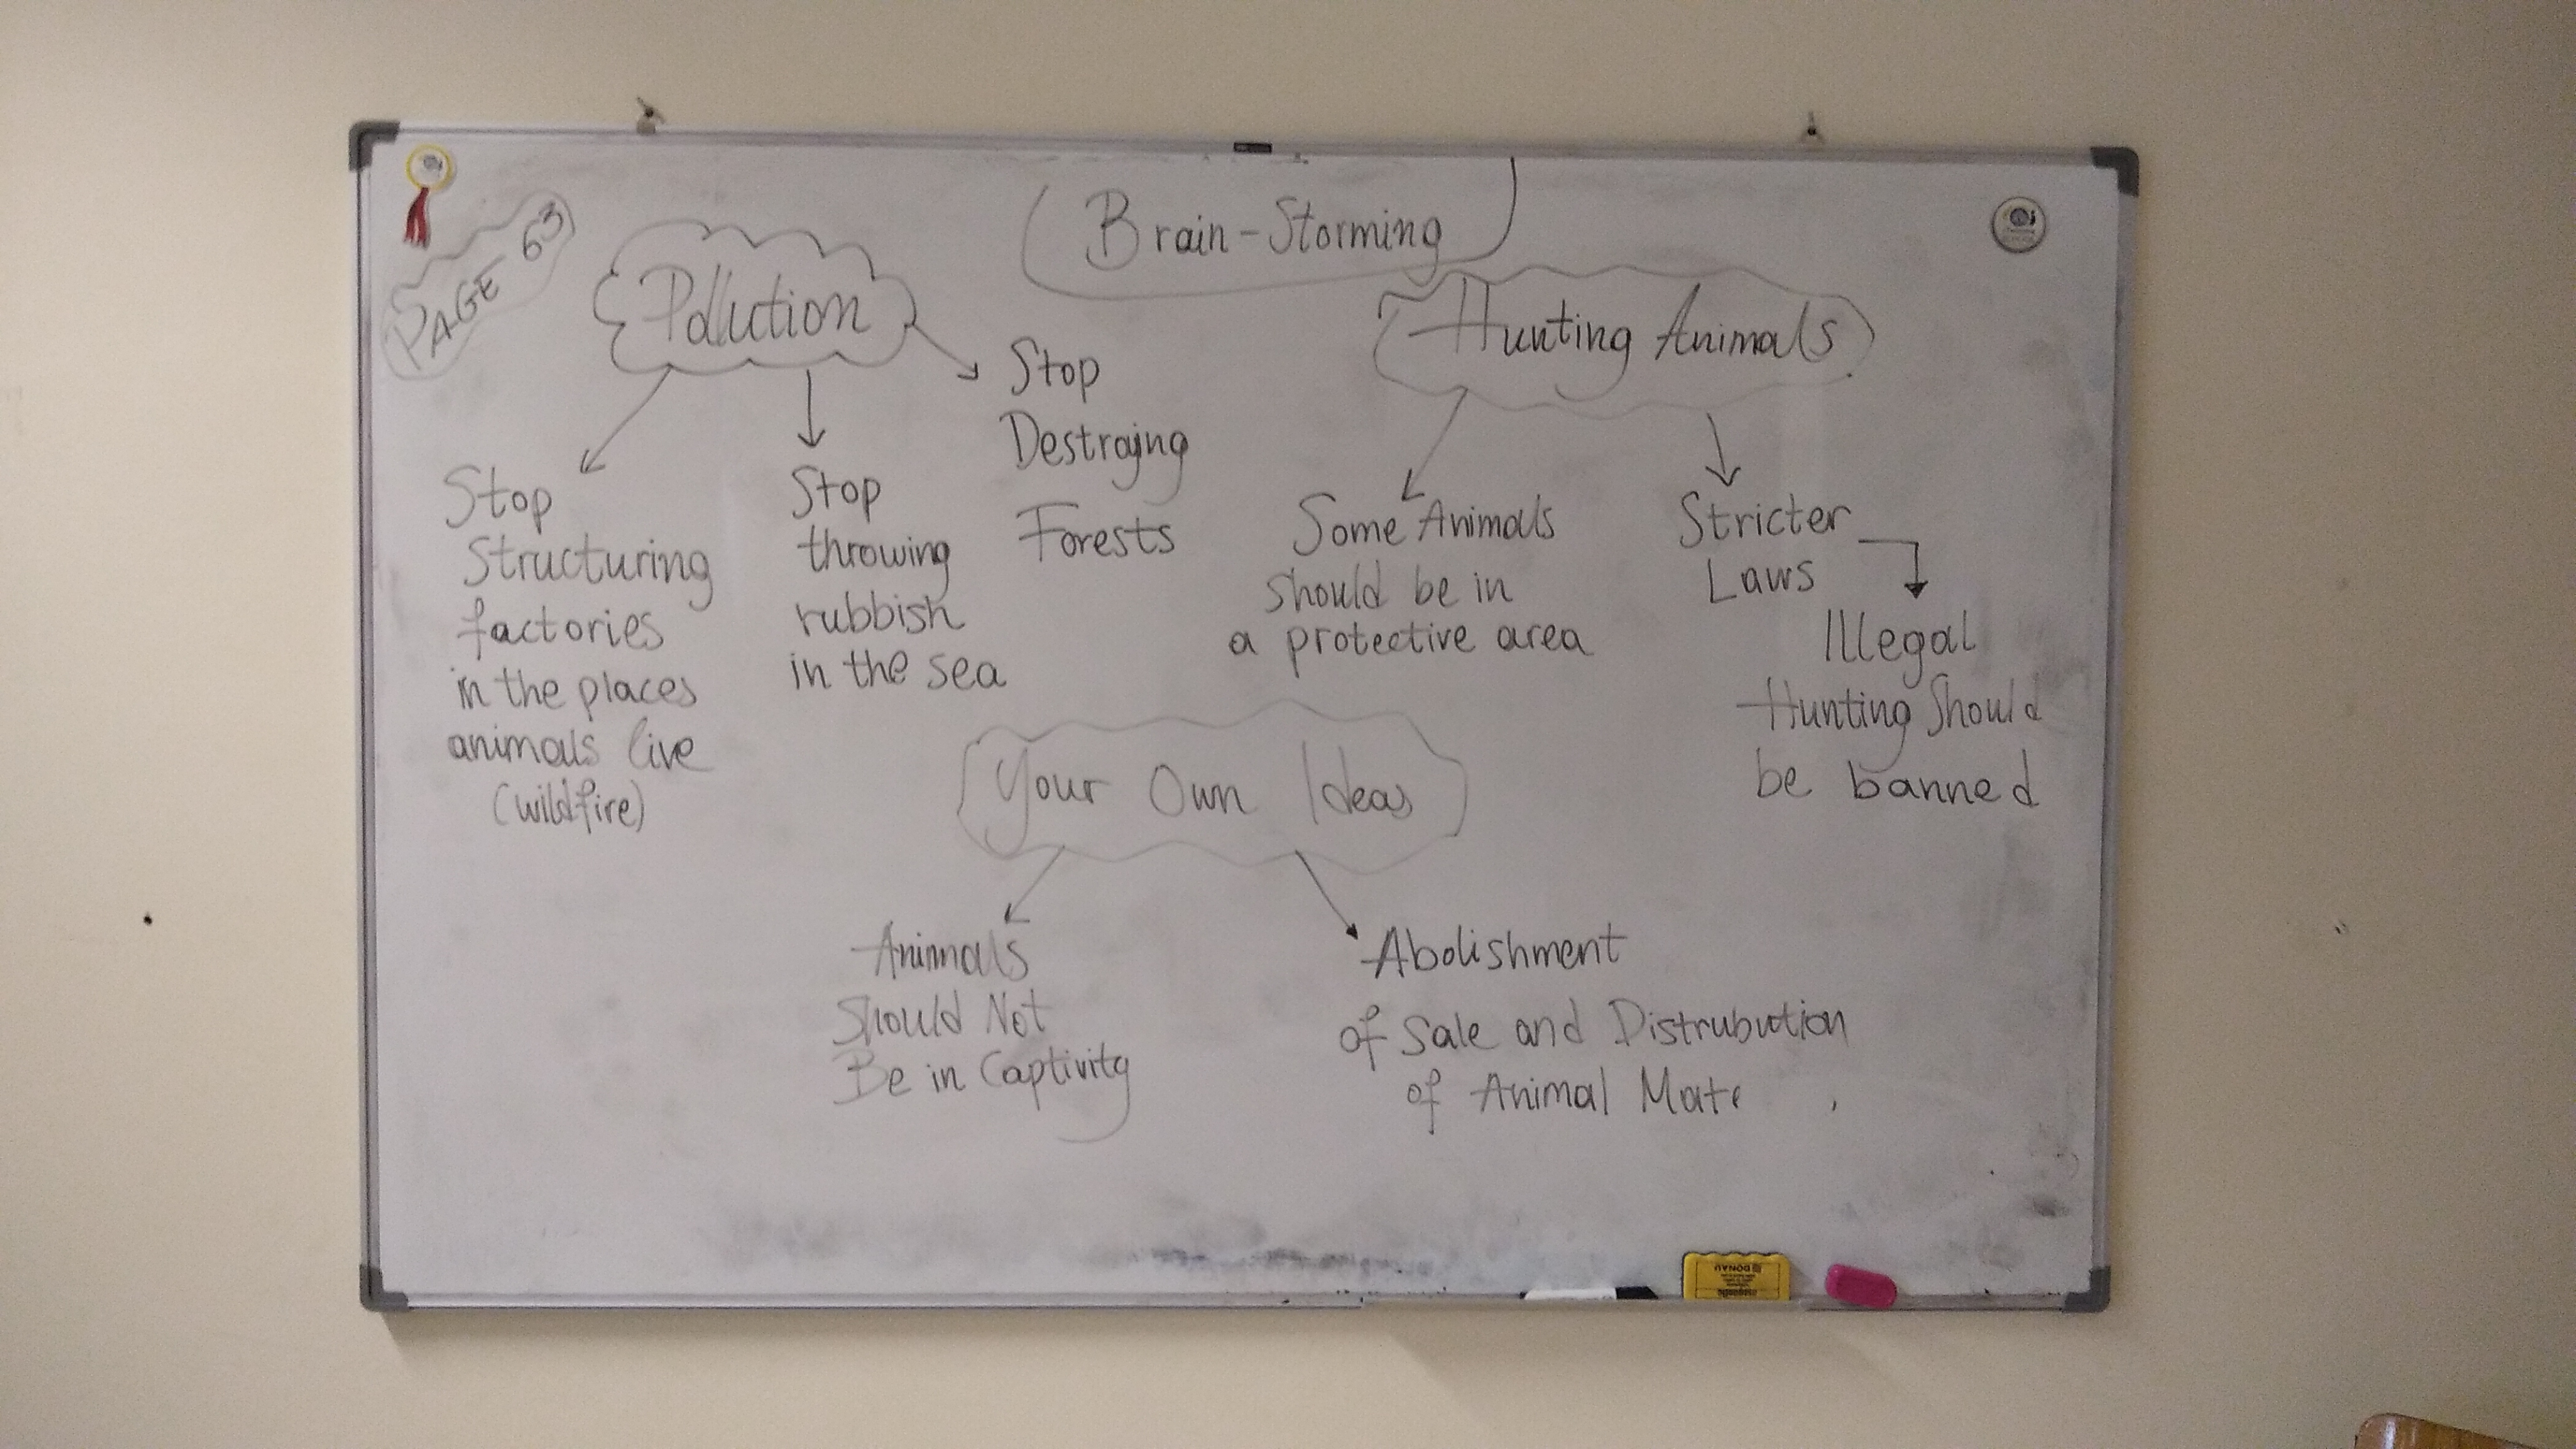 PAGE 63
Brain-Storming
Pollution
Stop
Structuring
factories
in the places
animals live
(wildfire)
Stop
throwing
rubbish
in the sea
Stop
Destrojng
Forests
Hunting Animals
Some Animals
should be in
a protective area
Stricter
Laws
Illegal
Hunting Should
be banned
Your Own Ideas
Animals
Should Not
Be in Captivity
Abolishment
of Sale and Distrubution
of Animal Mate
DONAU